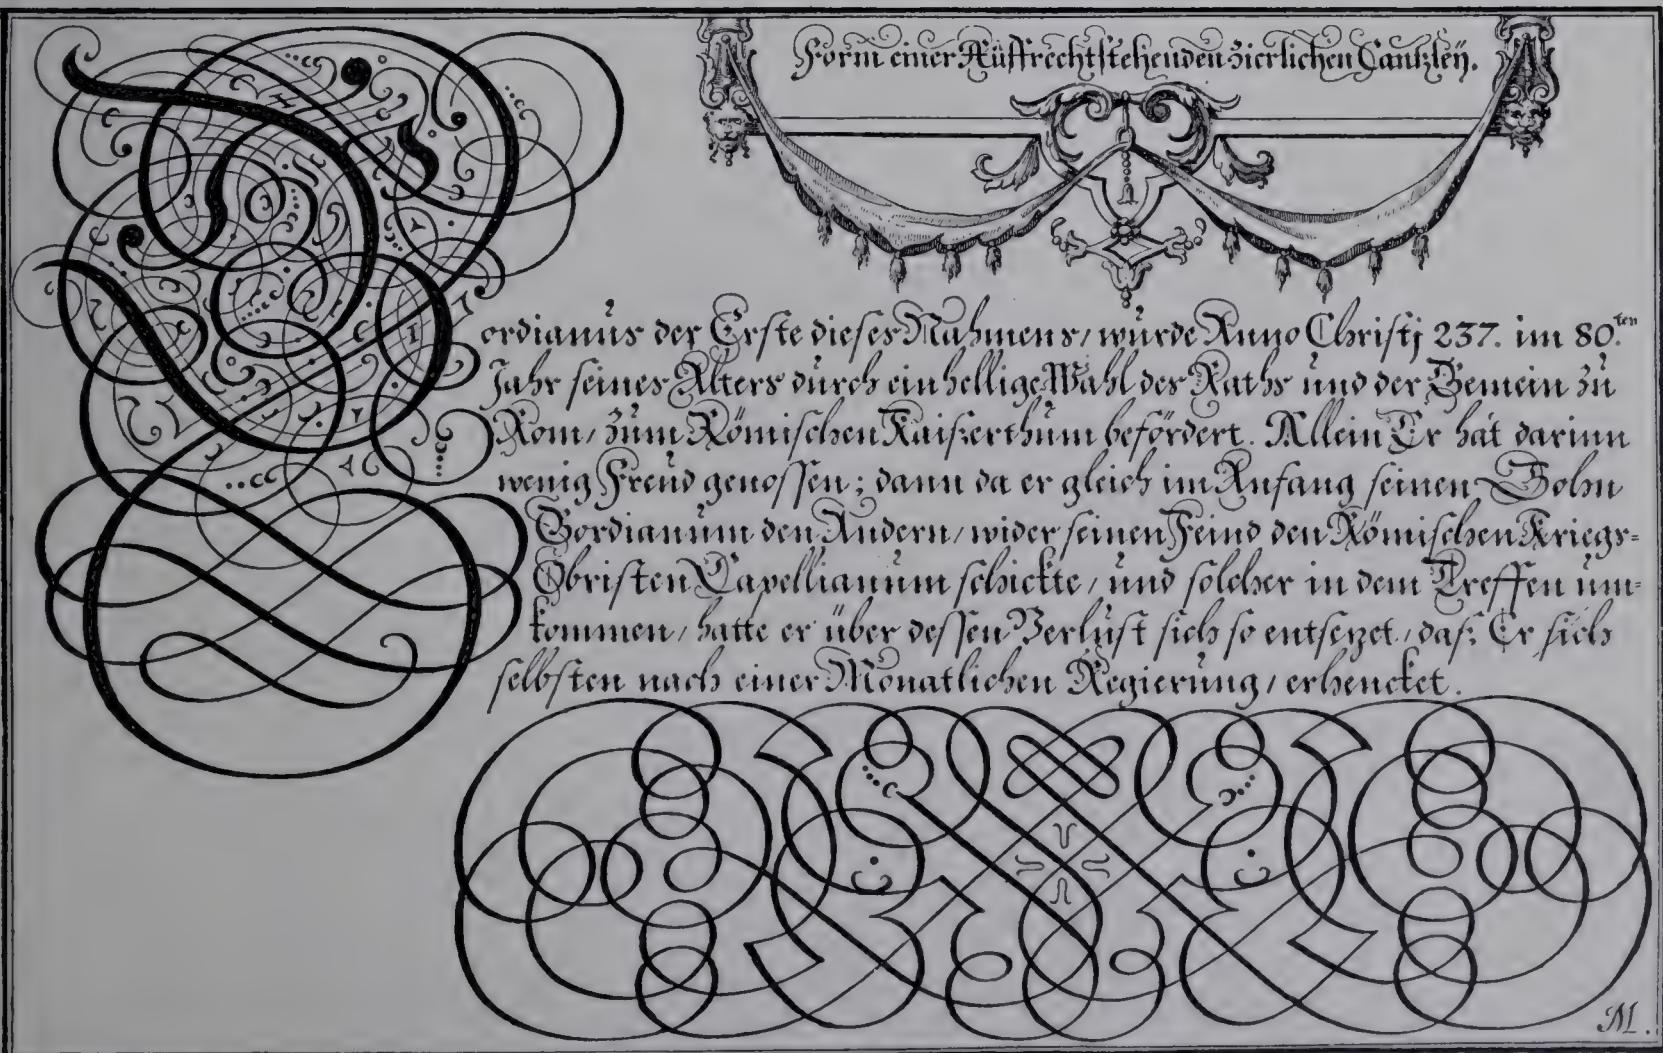 Form einer Auffrechtstehenden zierlichen Cantzleÿ.
Gordianus der Erste dieses Nahmens / wurde Anno Christj 237. im 80.ten
Jahr seines Alters durch ein hellige Wahl des Raths und der Gemein zu
Rom / zum Römischen Kaiserthum befördert. Allein Er hat darinn
wenig Freud genossen; dann da er gleich im Anfang seinen Sohn
Gordianum den Andern / wider seinen Feind den Römischen Kriegs=
Obristen Capellianum schickte / und solcher in dem Treffen um=
kommen / hatte er über dessen Verlust sich so entsezet / daß Er sich
selbsten nach einer Monatlichen Regierung / erhencket.
M.